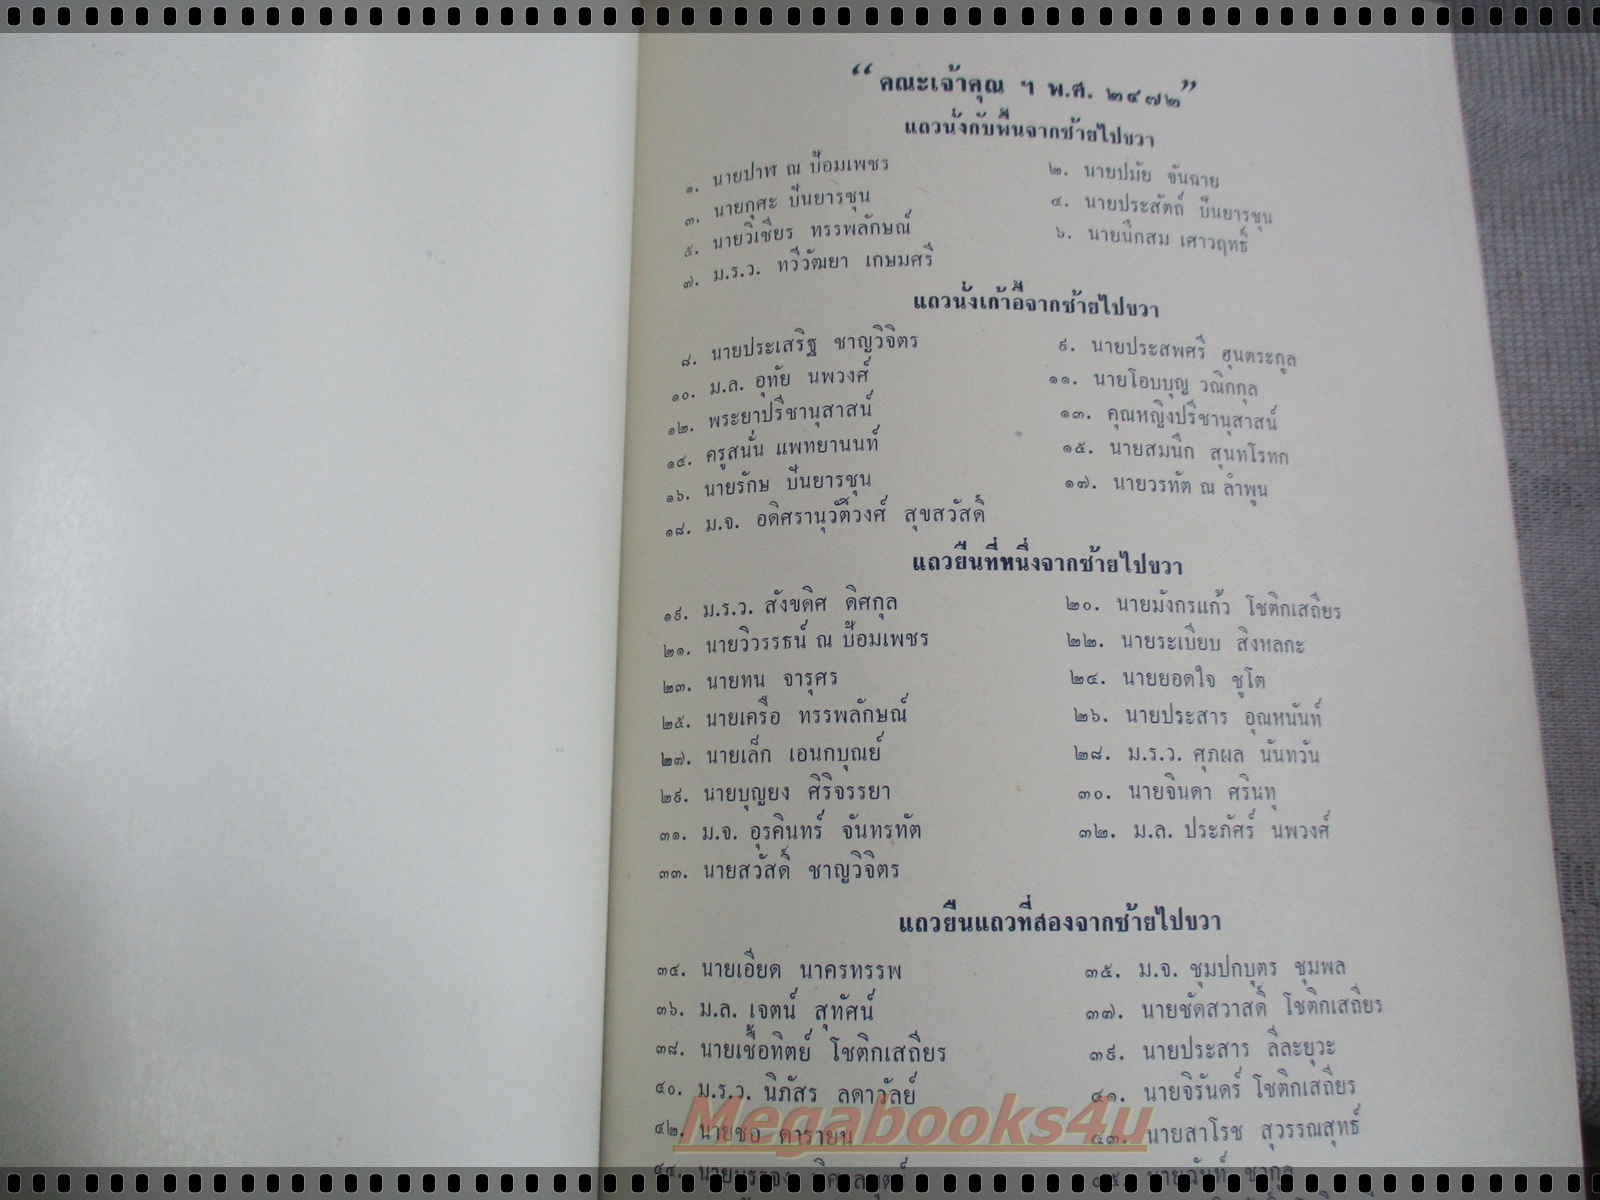 “ คณะเจ้าคุณ ฯ พ.ศ. ๒๔๗๒”
แถวนั่งกับพื้นจากซ้ายไปขวา
๑. นายปาฬ ณ ป้อมเพชร ๒. นายปมัย จันฉาย
๓. นายกุศะ ปันยารชุน ๔. นายประสัตถ์ ปันยารชุน
๕. นายวิเชียร ทรรพลักษณ์ ๖. นายนึกสม เศาวฤทธิ์
๗. ม.ร.ว. ทวีวัฒยา เกษมศรี
แถวนั่งเก้าอี้จากซ้ายไปขวา
๘. นายประเสริฐ ชาญวิจิตร ๙. นายประสพศรี ฮุนตระกูล
๑๐. ม.ล. อุทัย นพวงศ์ ๑๑. นายโอบบุญ วณิกกุล
๑๒. พระยาปรีชานุสาสน์ ๑๓. คุณหญิงปรีชานุสาสน์
๑๔. ครูสนั่น แพทยานนท์ ๑๕. นายสมนึก สุนทโรทก
๑๖. นายรักษ ปันยารชุน ๑๗. นายวรทัต ณ ลำพูน
๑๘. ม.จ. อดิศรานุวัติวงศ์ สุขสวัสดิ์
แถวยืนที่หนึ่งจากซ้ายไปขวา
๑๙. ม.ร.ว. สังขดิศ ดิศกุล ๒๐. นายมังกรแก้ว โชติกเสถียร
๒๑. นายวิวรรธน์ ณ ป้อมเพชร ๒๒. นายระเบียบ สิงหลกะ
๒๓. นายทน จารุศร ๒๔. นายยอดใจ ชูโต
๒๕. นายเครือ ทรรพลักษณ์ ๒๖. นายประสาร อุณหนันท์
๒๗. นายเล็ก เอนกบุณย์ ๒๘. ม.ร.ว. ศุภผล นันทวัน
๒๙. นายบุญยง ศิริจรรยา ๓๐. นายจินดา ศรินทุ
๓๑. ม.จ. อุรคินทร์ จันทรทัต ๓๒. ม.ล. ประภัศร์ นพวงศ์
๓๓. นายสวัสดิ์ ชาญวิจิตร
แถวยืนแถวที่สองจากซ้ายไปขวา
๓๔. นายเอียด นาครทรรพ ๓๕. ม.จ. ชุมปกบุตร ชุมพล
๓๖. ม.ล. เจตน์ สุทัศน์ ๓๗. นายชัดสวาสดิ์ โชติกเสถียร
๓๘. นายเชื้อทิตย์ โชติกเสถียร ๓๙. นายประสาร ลีละยุวะ
๔๐. ม.ร.ว. นิภัสร ลดาวัลย์ ๔๑. นายจิรันดร์ โชติกเสถียร
๔๒. นายชอ ดารายน ๔๓. นายสาโรช สุวรรณสุทธิ์
Megabooks4u